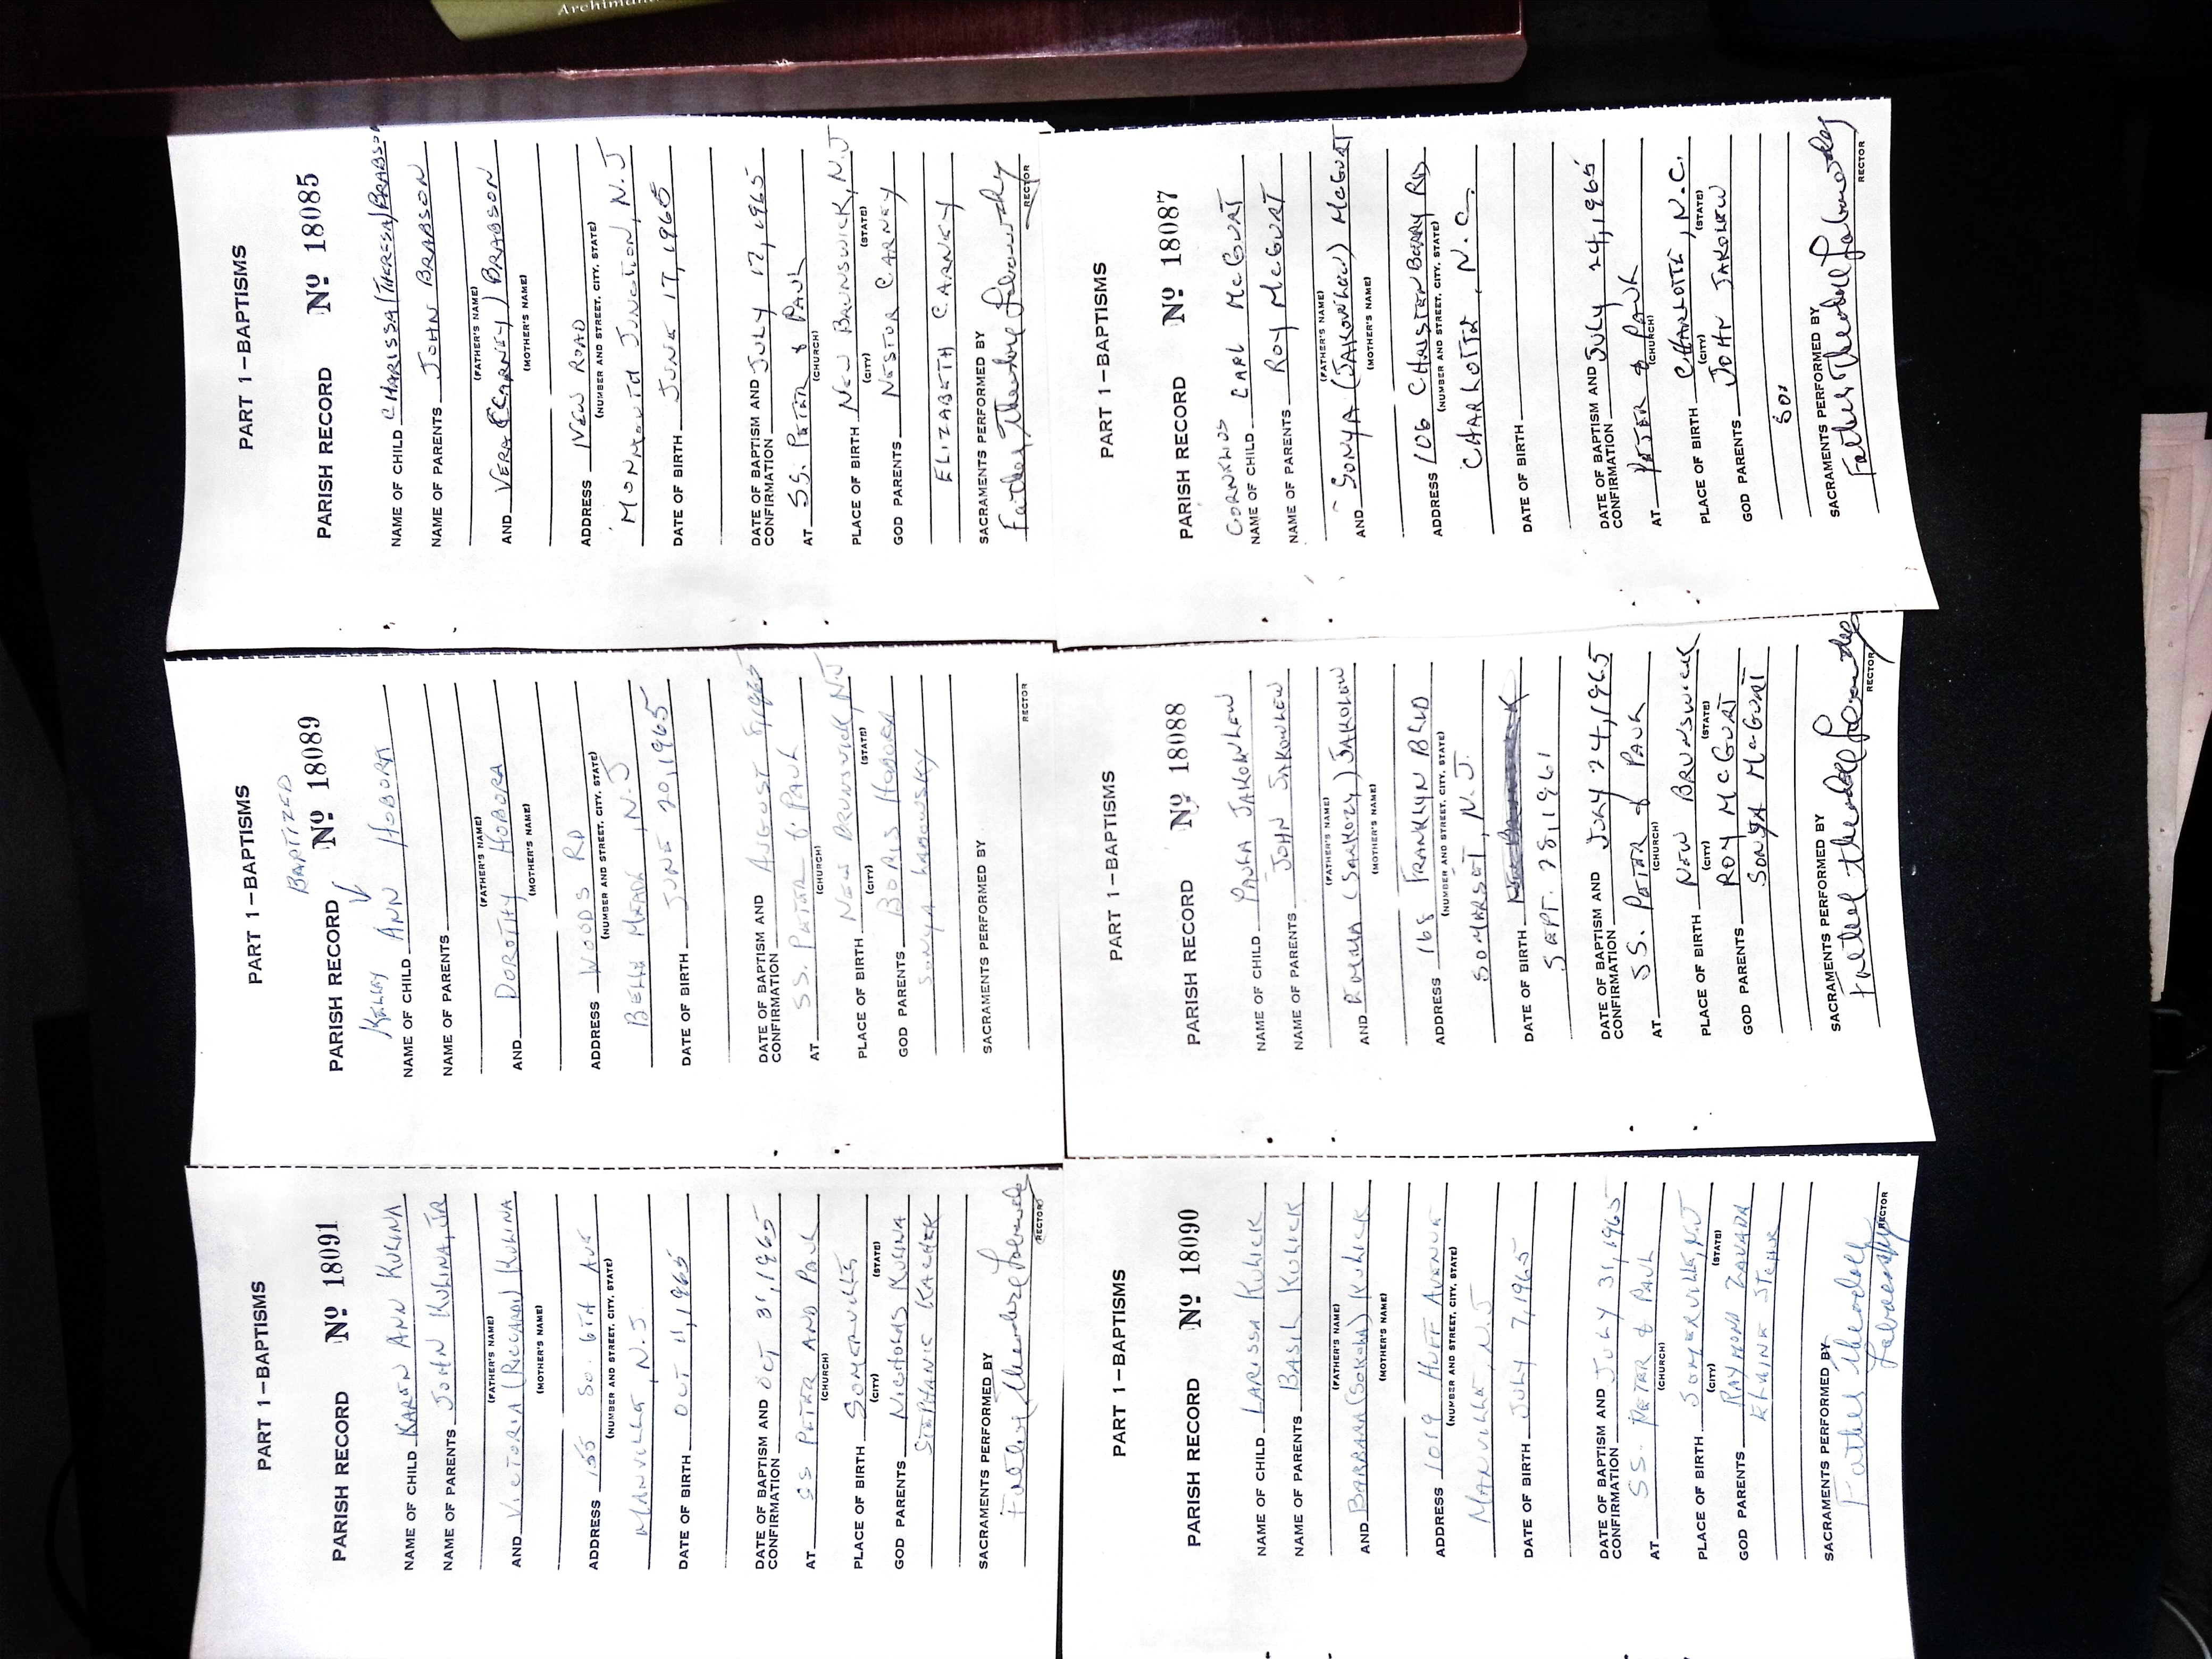 PART 1—BAPTISMS
PARISH RECORD Nº 18091
NAME OF CHILD KAREN ANN KULINA
NAME OF PARENTS JOHN KULINA, JR
(FATHER'S NAME)
AND VICTORIA (RICCARDI) KULINA
(MOTHER'S NAME)
ADDRESS 155 SO. 6TH AVE
(NUMBER AND STREET, CITY, STATE)
MANVILLE, N.J.
DATE OF BIRTH OCT 11, 1965
DATE OF BAPTISM AND
CONFIRMATION OCT 31, 1965
AT SS PETER AND PAUL
(CHURCH)
PLACE OF BIRTH SOMERVILLE
(CITY) (STATE)
GOD PARENTS NICHOLAS KULINA
STEPHANIE KACHEK
SACRAMENTS PERFORMED BY
Father Theodore Labowsky
RECTOR
PART 1—BAPTISMS
BAPTIZED
PARISH RECORD Nº 18089
KELLEY
NAME OF CHILD ANN HOBORA
NAME OF PARENTS
(FATHER'S NAME)
AND DOROTHY HOBORA
(MOTHER'S NAME)
ADDRESS WOODS RD
(NUMBER AND STREET, CITY, STATE)
BELLE MEADE, N.J
DATE OF BIRTH JUNE 20, 1965
DATE OF BAPTISM AND
CONFIRMATION AUGUST 8, 1965
AT SS. PETER & PAUL
(CHURCH)
PLACE OF BIRTH NEW BRUNSWICK, N.J
(CITY) (STATE)
GOD PARENTS BORIS HOBORA
SONYA LABOWSKY
SACRAMENTS PERFORMED BY
RECTOR
PART 1—BAPTISMS
PARISH RECORD Nº 18085
NAME OF CHILD CHARISSA (THERESA) BRABSON
NAME OF PARENTS JOHN BRABSON
(FATHER'S NAME)
AND VERA (CARNEY) BRABSON
(MOTHER'S NAME)
ADDRESS NEW ROAD
(NUMBER AND STREET, CITY, STATE)
MONMOUTH JUNCTION, N.J
DATE OF BIRTH JUNE 17, 1965
DATE OF BAPTISM AND
CONFIRMATION JULY 17, 1965
AT SS. PETER & PAUL
(CHURCH)
PLACE OF BIRTH NEW BRUNSWICK, N.J
(CITY) (STATE)
GOD PARENTS NESTOR CARNEY
ELIZABETH CARNEY
SACRAMENTS PERFORMED BY
Father Theodore Labowsky
RECTOR
PART 1—BAPTISMS
PARISH RECORD Nº 18090
NAME OF CHILD LARISSA KULICK
NAME OF PARENTS BASIL KULICK
(FATHER'S NAME)
AND BARBARA (SOKOLA) KULICK
(MOTHER'S NAME)
ADDRESS 1019 HUFF AVENUE
(NUMBER AND STREET, CITY, STATE)
MANVILLE, N.J
DATE OF BIRTH JULY 7, 1965
DATE OF BAPTISM AND
CONFIRMATION JULY 31, 1965
AT SS. PETER & PAUL
(CHURCH)
PLACE OF BIRTH SOMERVILLE, N.J
(CITY) (STATE)
GOD PARENTS RAYMOND ZAVADA
ELAINE
SACRAMENTS PERFORMED BY
Father Theodore
Labowsky RECTOR
PART 1—BAPTISMS
PARISH RECORD Nº 18088
NAME OF CHILD PAULA JAKOWLEW
NAME OF PARENTS JOHN JAKOWLEW
(FATHER'S NAME)
AND EMMA (SARKOZY) JAKOLEW
(MOTHER'S NAME)
ADDRESS 168 FRANKLYN BLVD
(NUMBER AND STREET, CITY, STATE)
SOMARSET, N.J.
DATE OF BIRTH NEW BRUNSWICK
SEPT. 28, 1961
DATE OF BAPTISM AND
CONFIRMATION JULY 24, 1965
AT SS. PETER & PAUL
(CHURCH)
PLACE OF BIRTH NEW BRUNSWICK
(CITY) (STATE)
GOD PARENTS ROY McGURT
SONYA McGURT
SACRAMENTS PERFORMED BY
Father Theodore Labowsky
RECTOR
PART 1—BAPTISMS
PARISH RECORD Nº 18087
CORNELIUS
NAME OF CHILD CARL McGURT
NAME OF PARENTS ROY McGURT
(FATHER'S NAME)
AND SONYA (JAKOWLEW) McGURT
(MOTHER'S NAME)
ADDRESS 106 CHRISTENBERRY RD
(NUMBER AND STREET, CITY, STATE)
CHARLOTTE, N.C.
DATE OF BIRTH
DATE OF BAPTISM AND
CONFIRMATION JULY 24, 1965
AT PETER & PAUL
(CHURCH)
PLACE OF BIRTH CHARLOTTE, N.C.
(CITY) (STATE)
GOD PARENTS JOHN JAKOLEW
SACRAMENTS PERFORMED BY
Father Theodore Labowsky
RECTOR